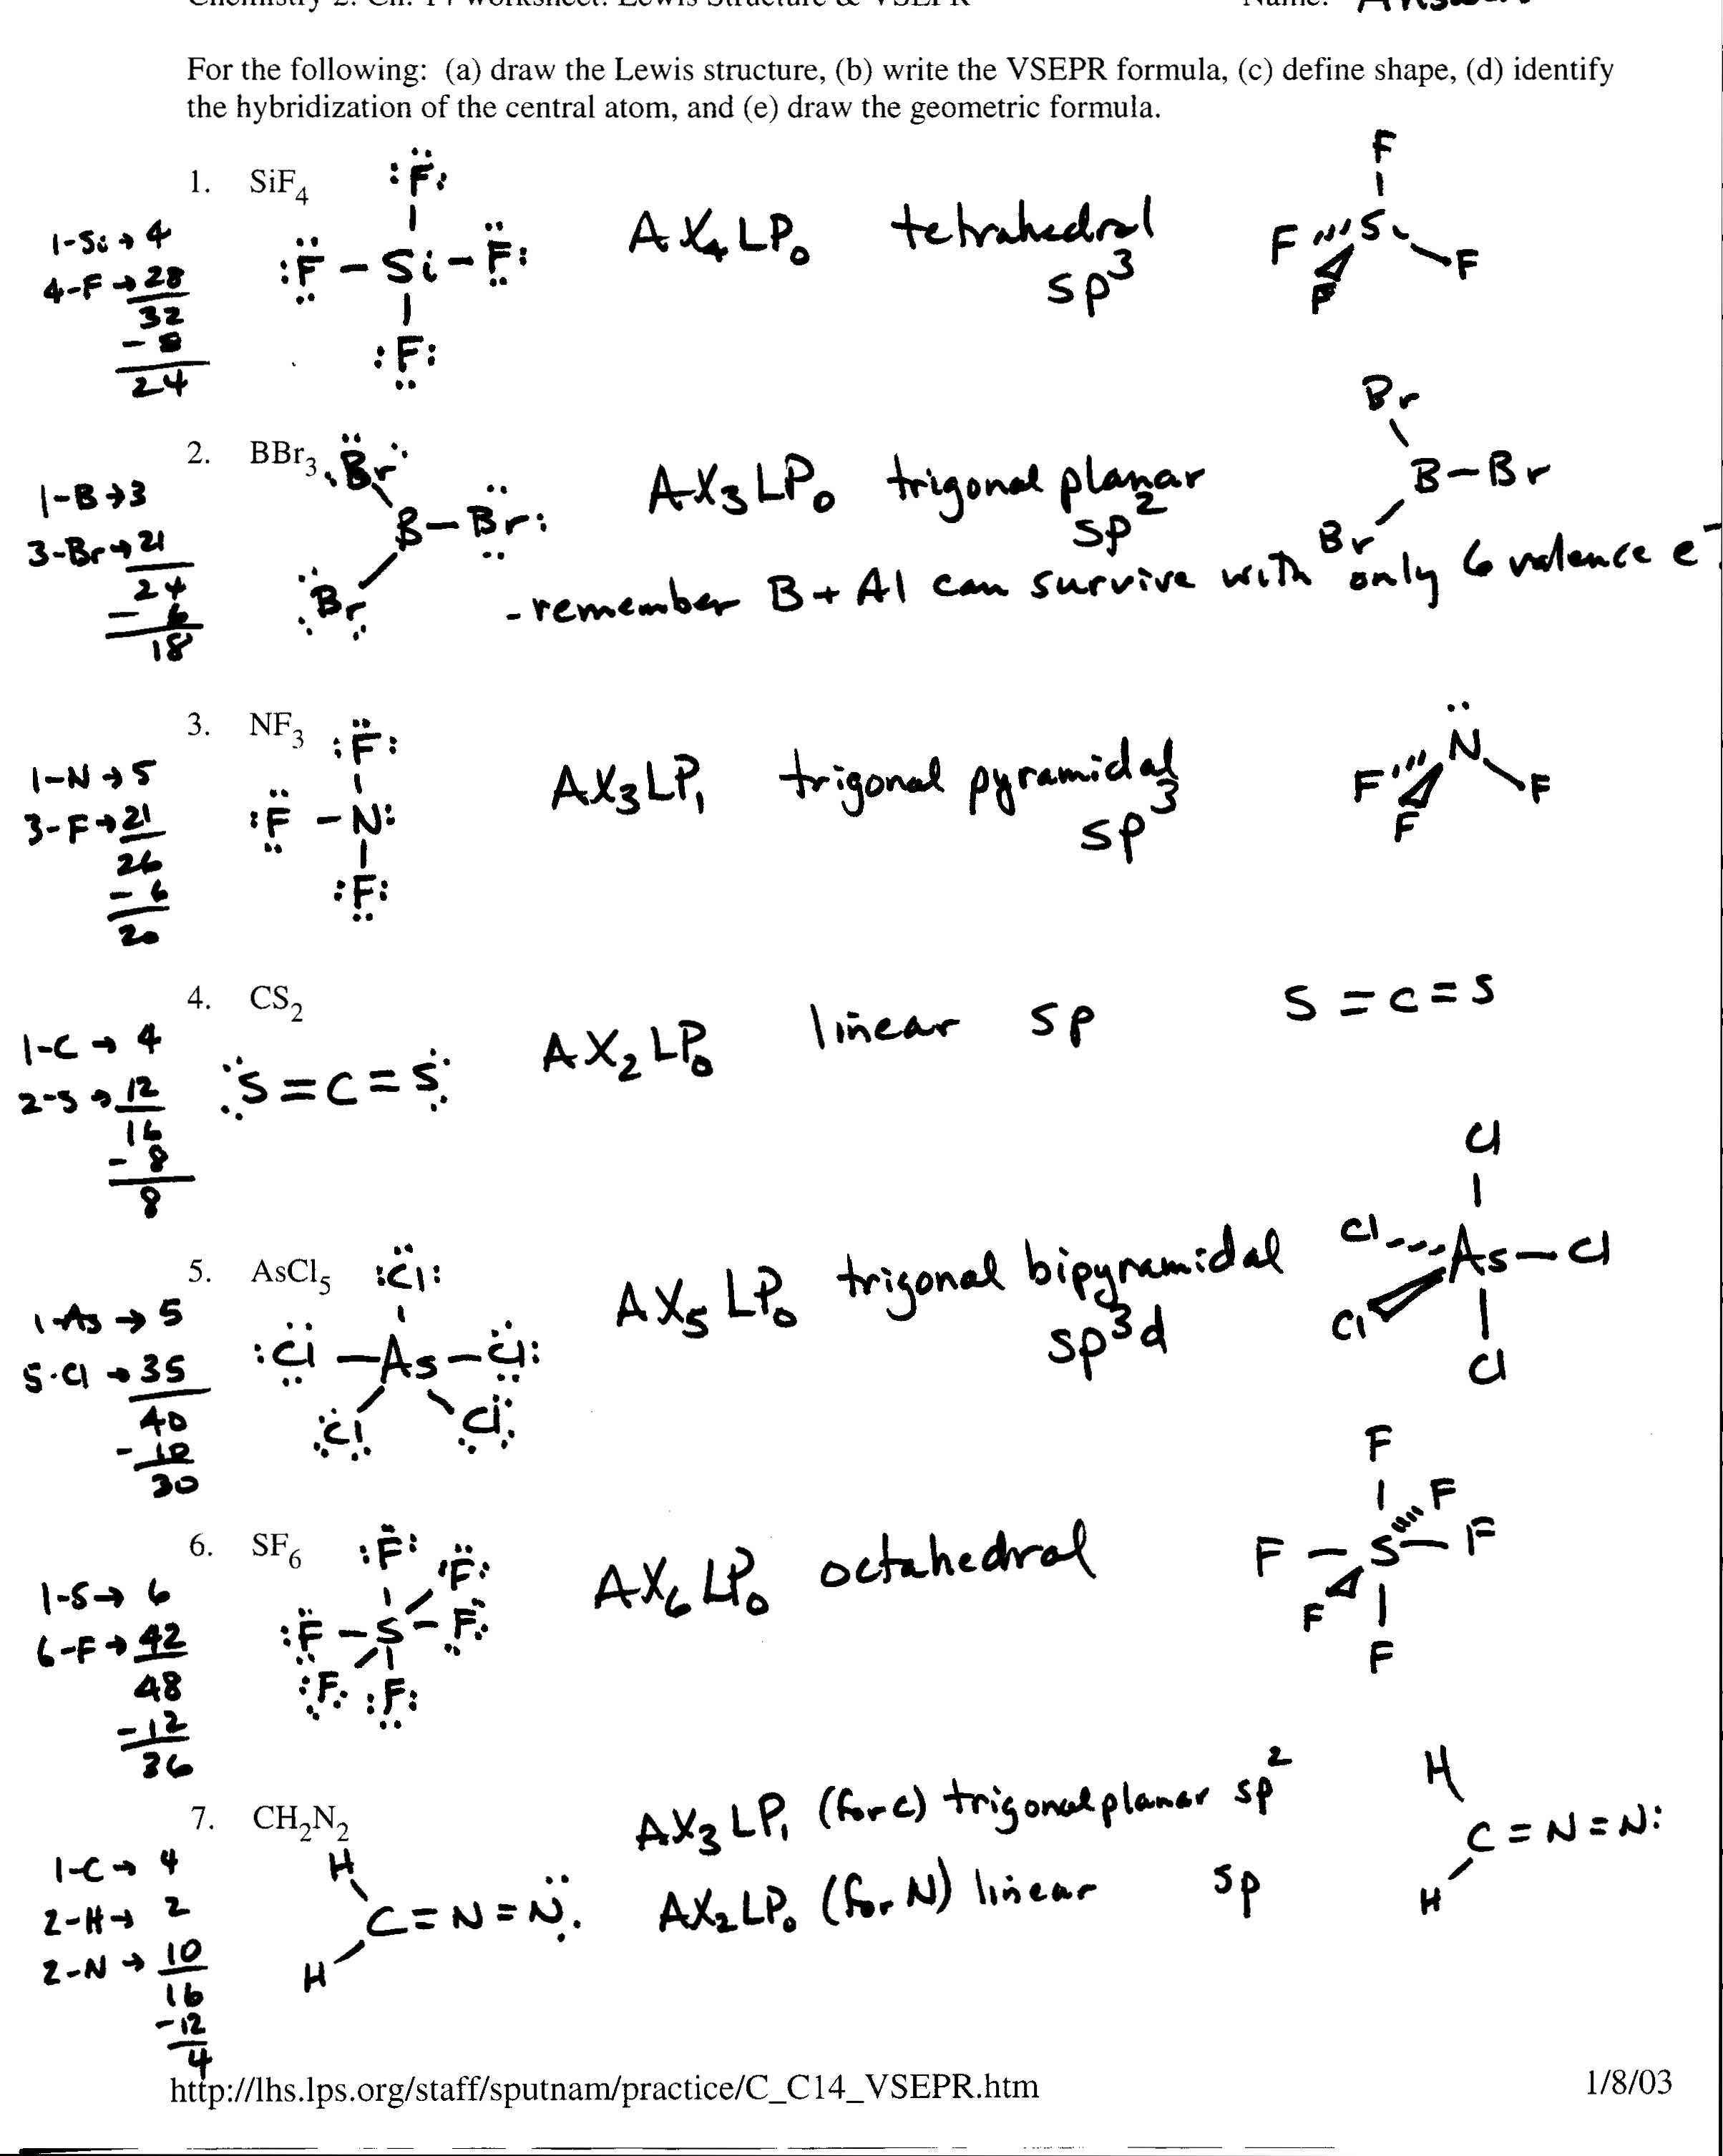 Chemistry 2: Ch. 14 worksheet: Lewis Structure & VSEPR Name: Answers
For the following: (a) draw the Lewis structure, (b) write the VSEPR formula, (c) define shape, (d) identify
the hybridization of the central atom, and (e) draw the geometric formula.
1. SiF4
1-Si → 4
4-F → 28
32
- 8
24
:F:
:F - Si - F:
:F:
AX4LP0 tetrahedral
sp3
F
F Si F
F
2. BBr3
1-B → 3
3-Br → 21
24
- 6
18
Br
B - Br:
Br
AX3LP0 trigonal planar
sp2
Br
B - Br
Br
- remember B + Al can survive with only 6 valence e-
3. NF3
1-N → 5
3-F → 21
26
- 6
20
:F:
:F - N:
:F:
AX3LP1 trigonal pyramidal
sp3
N
F F
F
4. CS2
1-C → 4
2-S → 12
16
- 8
8
S = C = S
AX2LP0 linear sp
S = C = S
5. AsCl5
1-As → 5
5-Cl → 35
40
- 10
30
:Cl:
:Cl - As - Cl:
Cl Cl
AX5LP0 trigonal bipyramidal
sp3d
Cl
Cl As - Cl
Cl
Cl
6. SF6
1-S → 6
6-F → 42
48
- 12
36
:F: F:
:F - S - F:
:F: :F:
AX6LP0 octahedral
F
F
F - S - F
F
F
7. CH2N2
1-C → 4
2-H → 2
2-N → 10
16
- 12
4
H
C = N = N
H
AX3LP1 (for C) trigonal planar sp2
AX2LP0 (for N) linear sp
H
C = N = N:
H
http://lhs.lps.org/staff/sputnam/practice/C_C14_VSEPR.htm 1/8/03